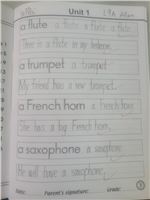 Unit 1
a flute a flute a flute a flute
There is a flute in my bedroom.
a trumpet a trumpet
My friend has a new trumpet.
a French horn a french horn
She has a big French horn.
a saxophone a saxophone
He will have a saxophone.
Date: Parent's signature: Grade:
3